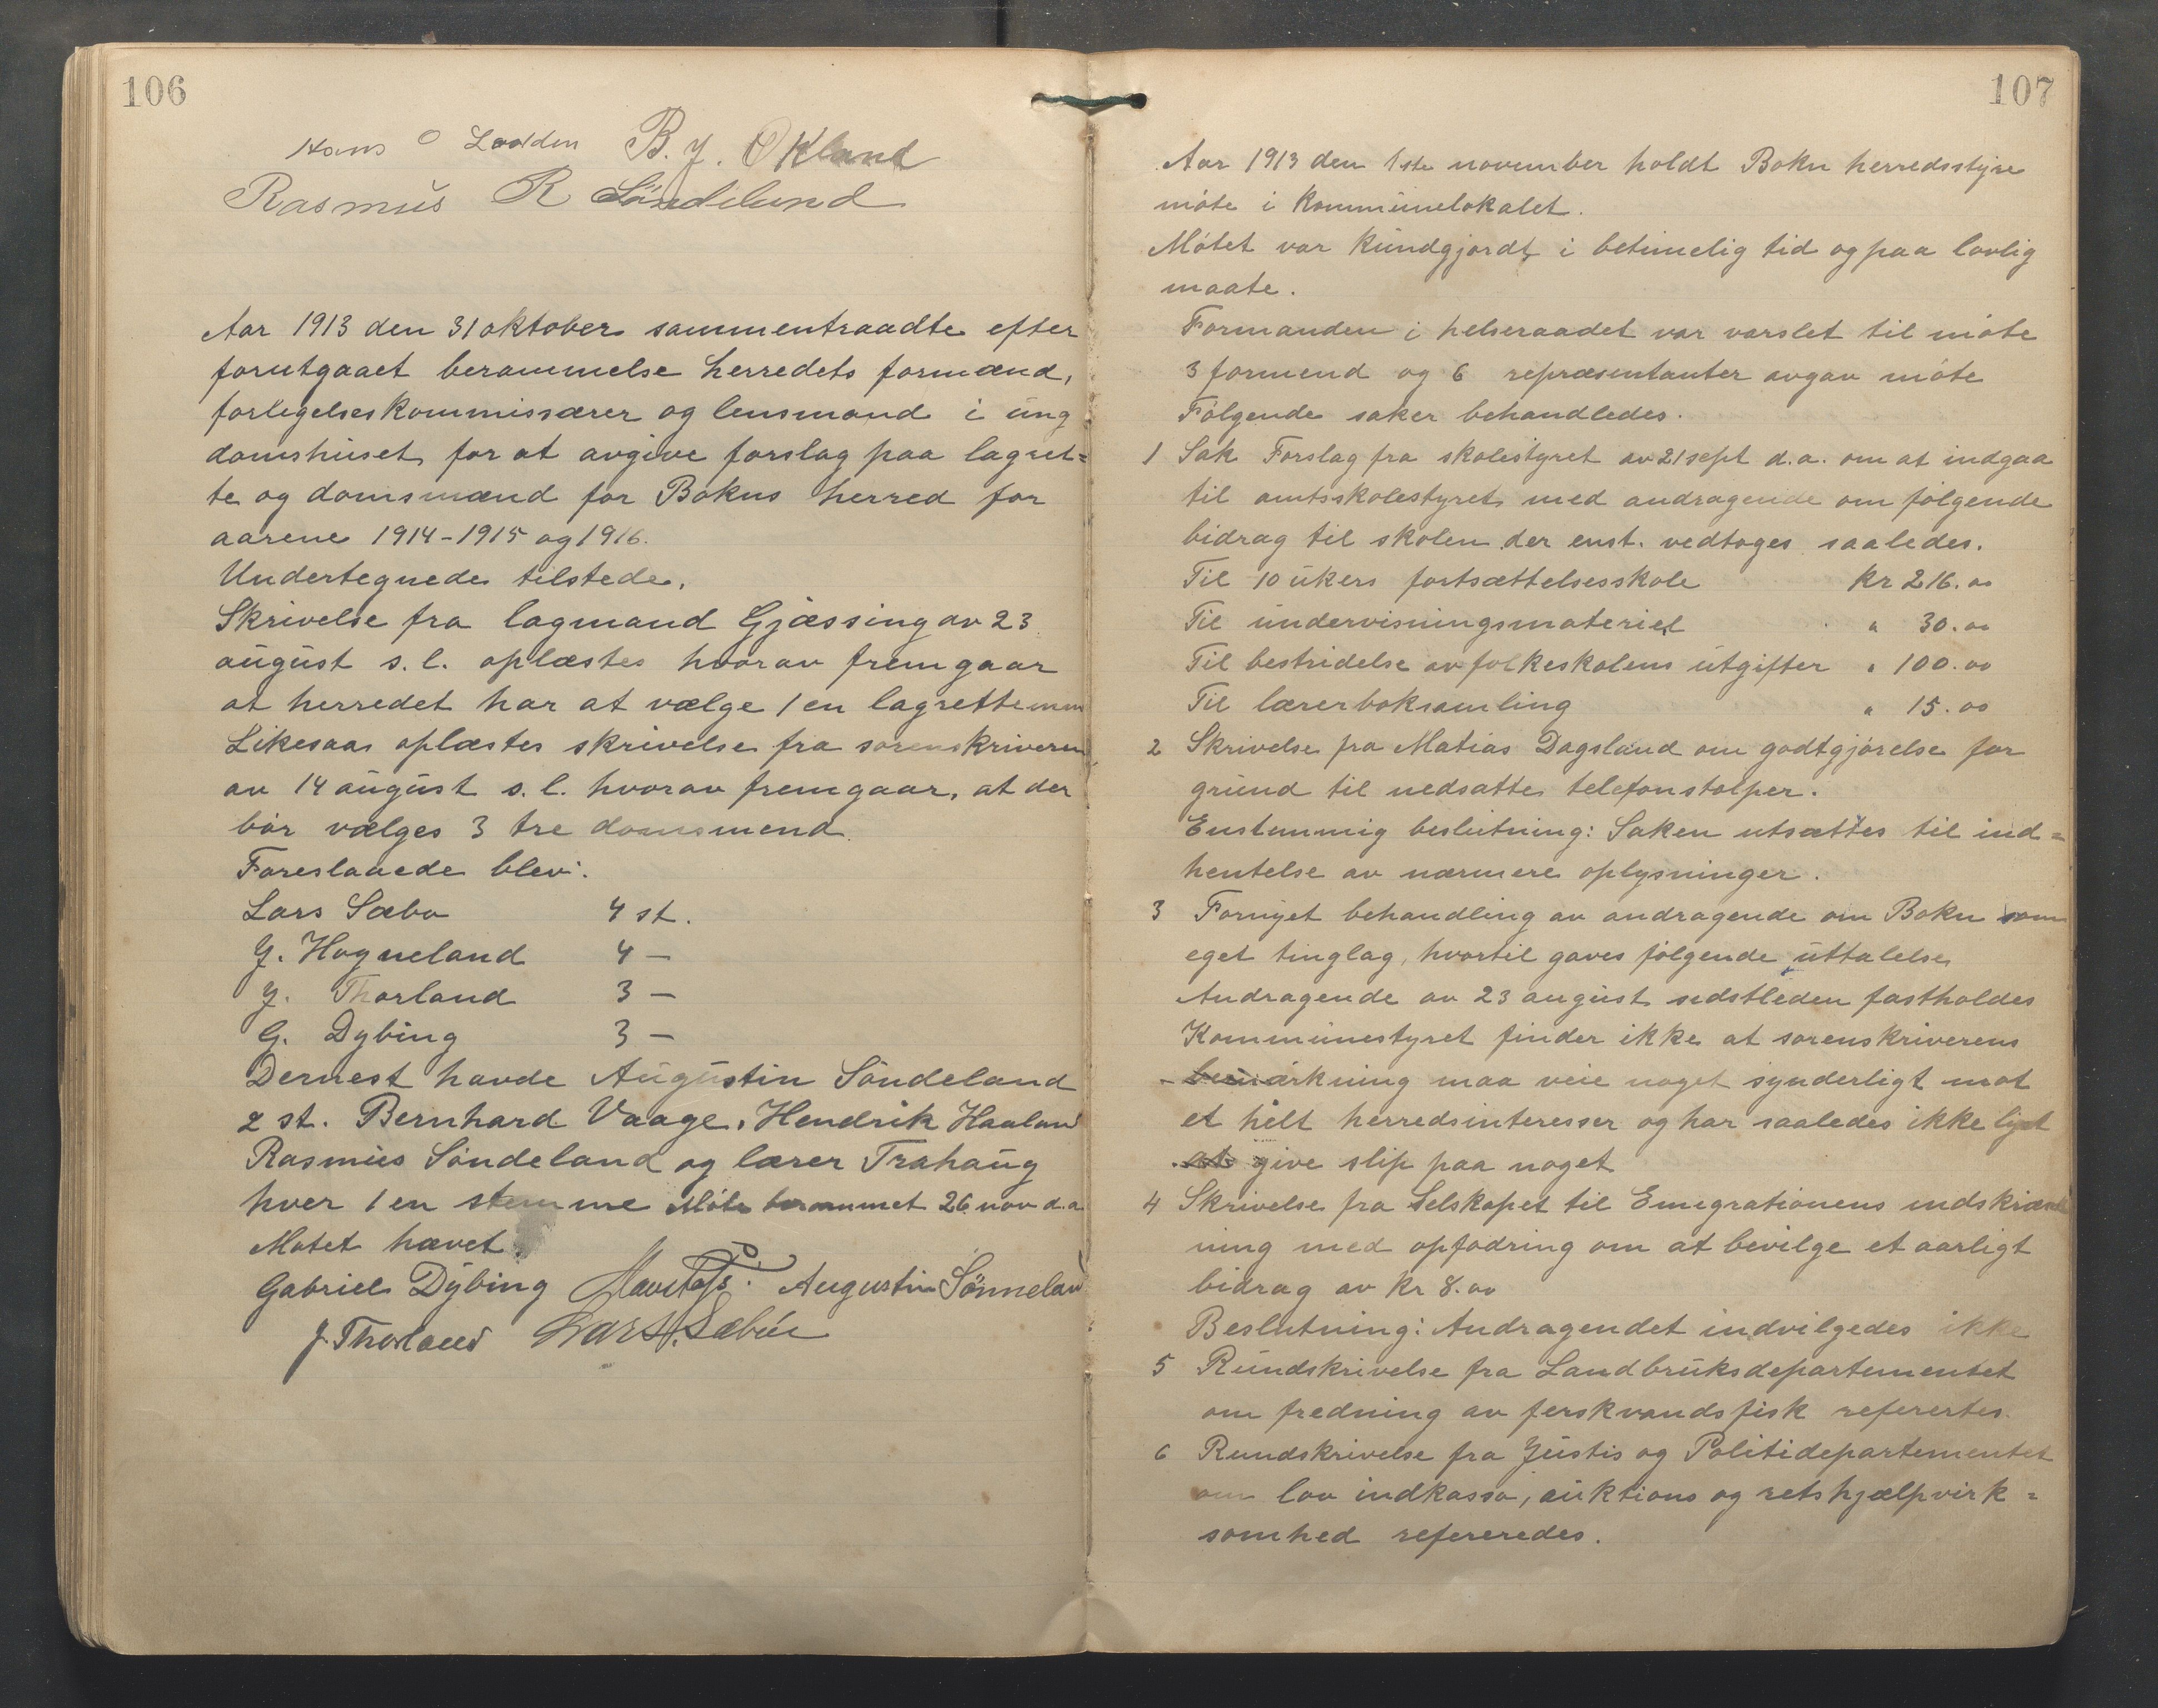 106
Hans O Loden B. J. Økland
Rasmus R Søndelund
Aar 1913 den 31 oktober sammentraadte efter
forutgaaet berammelse herredets formænd,
forligelseskommissærer og lensmand i ung
domshuset for at avgive forslag paa lagret-
te og domsmænd for Bokns herred for
aarene 1914-1915 og 1916.
Undertegnede tilstede.
Skrivelse fra lagmand Gjæssing av 23
august s. l. oplæstes hvorav fremgaar
at herredet har at vælge 1 en lagrettemm
Likesaa oplæstes skrivelse fra sorenskriveren
av 14 august s. l. hvorav fremgaar, at der
bør vælges 3 tre domsmend.
Foreslaaede blev:
Lars Sæbø 4 st.
J. Hogneland 4 —
J. Thorland 3 —
G. Dybing 3 —
Dernest havde Augustin Søndeland
2 st. Bernhard Vaage, Hendrik Haaland
Rasmus Søndeland og lærer Trahaug
hver 1 en stemme Møte berammet 26 nov d.a
Møtet hævet.
Gabriel Dybing Augustin Sønneland
J Thorland Lars. Sæbøe
107
Aar 1913 den 1ste november holdt Bokn herredsstyre
møte i kommunelokalet.
Møtet var kundgjordt i betimelig tid og paa lovlig
maate.
Formanden i helseraadet var varslet til møte
3 formend og 6 repræsentanter avgav møte
Følgende saker behandledes.
1 Sak Forslag fra skolestyret av 21 sept d.a. om at indgaa
til amtsskolestyret med andragende om følgende
bidrag til skolen der enst. vedtoges saaledes.
Til 10 ukers fortsættelsesskole kr 216.00
Til undervisningsmateriel " 30.00
Til bestridelse av folkeskolens utgifter " 100.00
Til lærerboksamling " 15.00
2 Skrivelse fra Matias Dagsland om godtgjørelse for
grund til nedsatte telefonstolper.
Enstemmig beslutning: Saken utsættes til ind-
hentelse av nærmere oplysninger.
3 Fornyet behandling av andragende om Bokn som
eget tinglag, hvortil gaves følgende uttalelse
Andragende av 23 august sidstleden fastholdes
Kommunestyret finder ikke at sorenskriverens
bemærkning maa veie noget synderligt mot
et helt herredsinteresser og har saaledes ikke lyst
at give slip paa noget
4 Skrivelse fra Selskapet til Emigrationens indskrænk
ning med opfodring om at bevilge et aarligt
bidrag av kr 8.00
Beslutning: Andragendet indvilgedes ikke
5 Rundskrivelse fra Landbruksdepartementet
om fredning av ferskvandsfisk referertes.
6 Rundskrivelse fra Justis og Politidepartementet
om lov indkasso, auktions og retshjælpvirk-
somhed refereredes.